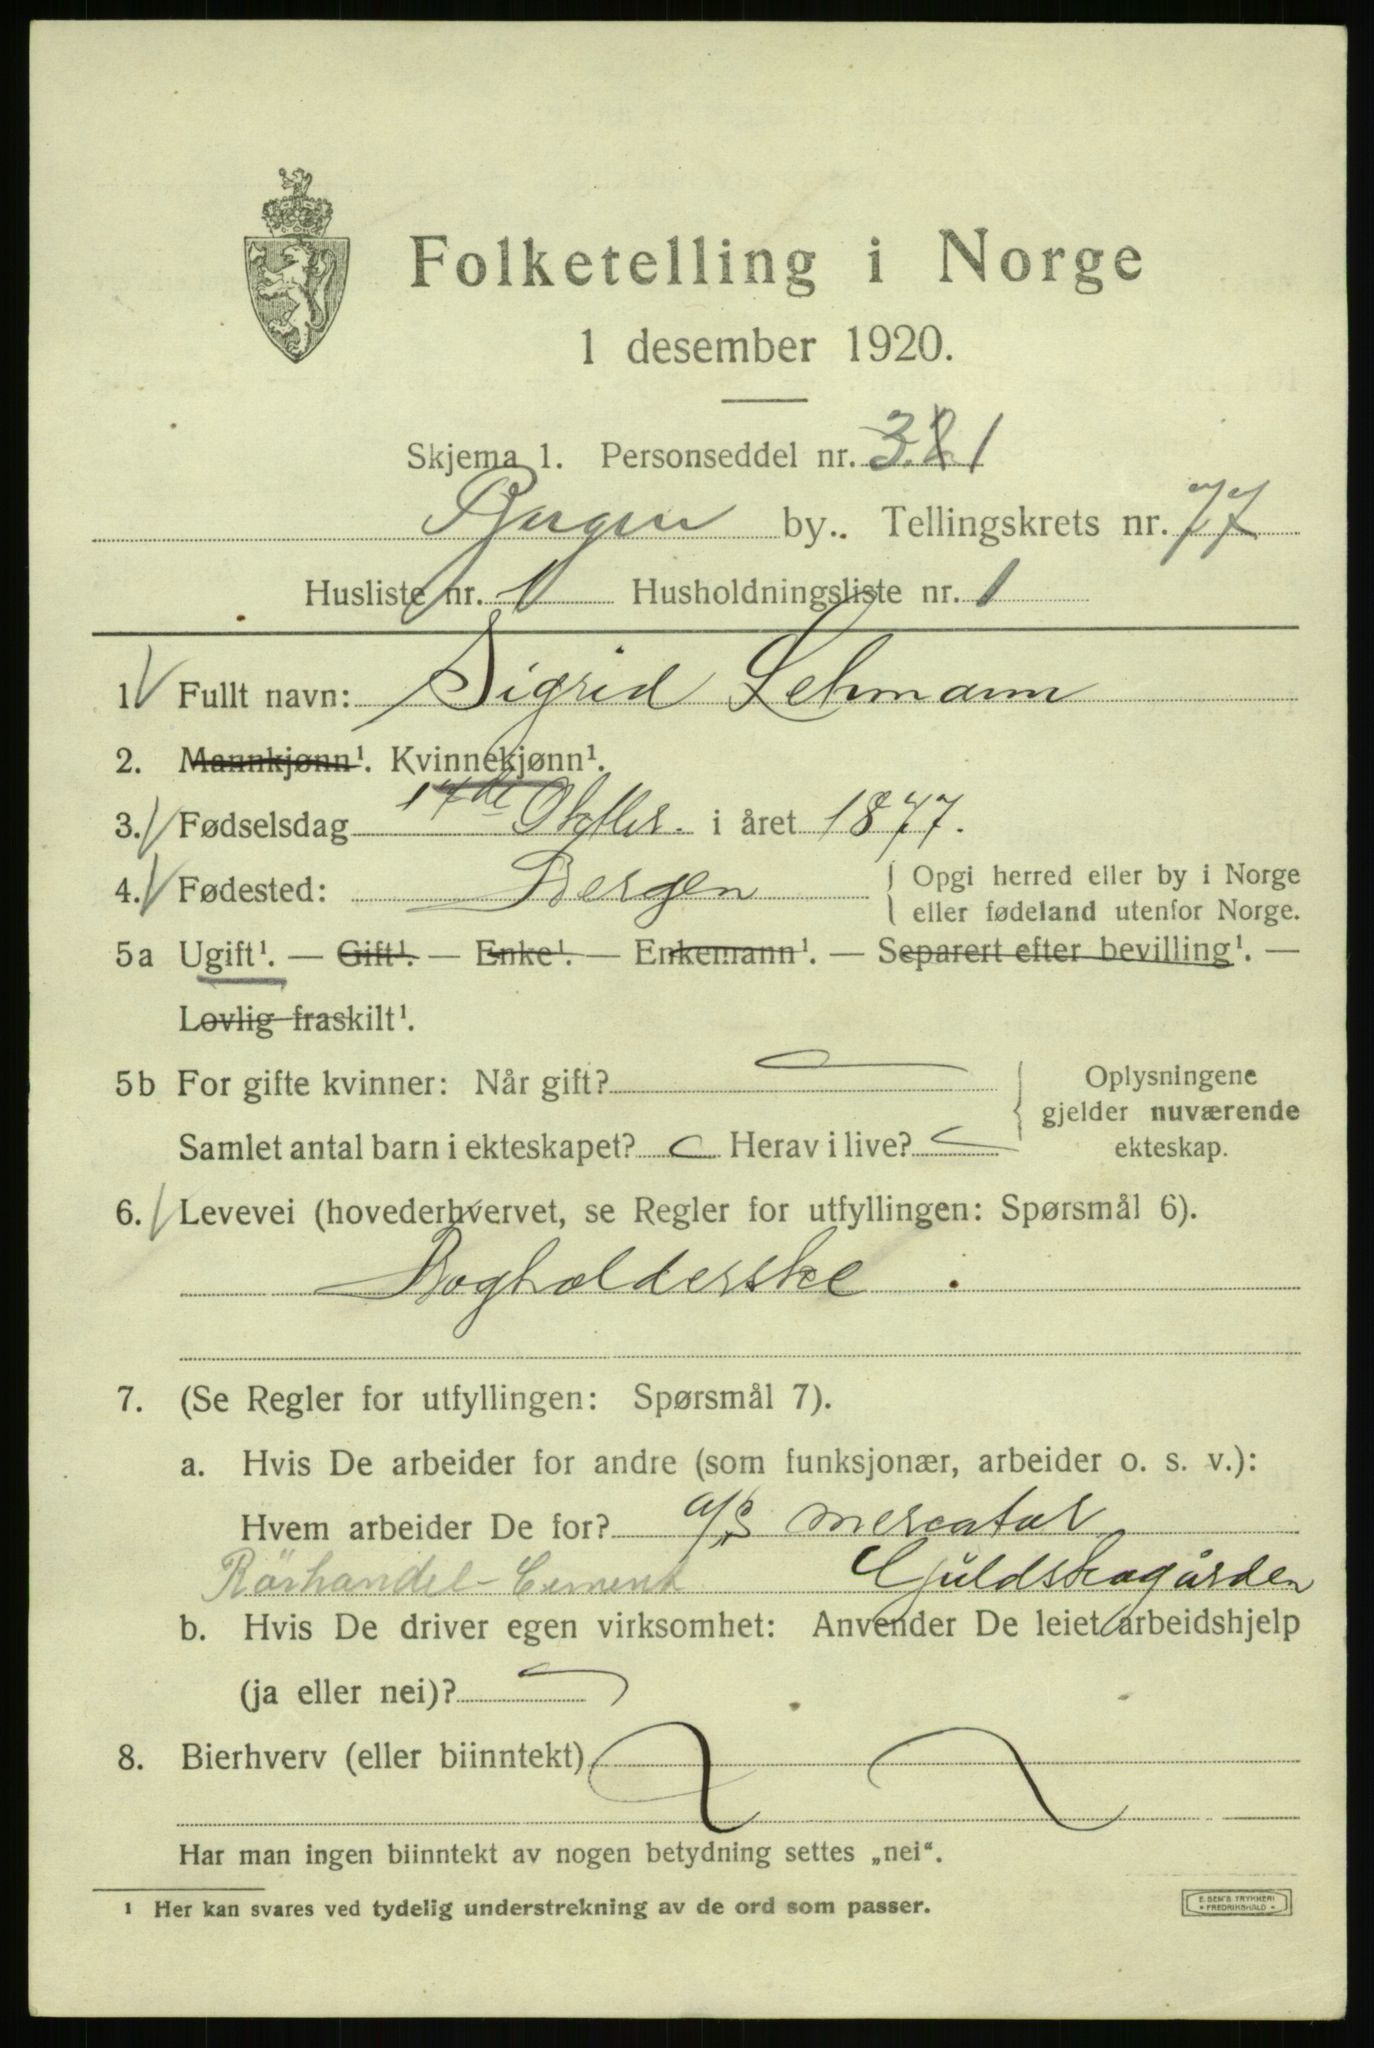 Folketelling i Norge
1 desember 1920.
Skjema 1. Personseddel nr. 381
Bergen by. Tellingskrets nr. 77
Husliste nr. 1 Husholdningsliste nr. 1
1. Fullt navn: Sigrid Lehmann
2. Mannkjønn¹. Kvinnekjønn¹.
3. Fødselsdag 17de Oktbr. i året 1877.
4. Fødested: Bergen { Opgi herred eller by i Norge
eller fødeland utenfor Norge.
5a Ugift¹. — Gift¹. — Enke¹. — Enkemann¹. — Separert efter bevilling¹. —
Lovlig fraskilt¹.
5b For gifte kvinner: Når gift? Oplysningene
gjelder nuværende
Samlet antal barn i ekteskapet? Herav i live? ekteskap.
6. Levevei (hovederhvervet, se Regler for utfyllingen: Spørsmål 6).
Bogholderske
7. (Se Regler for utfyllingen: Spørsmål 7).
a. Hvis De arbeider for andre (som funksjonær, arbeider o. s. v.):
Hvem arbeider De for? A/S Mercator
Rörhandel - Cement Gjuldskogården
b. Hvis De driver egen virksomhet: Anvender De leiet arbeidshjelp
(ja eller nei)?
8. Bierhverv (eller biinntekt)
Har man ingen biinntekt av nogen betydning settes „nei“.
¹ Her kan svares ved tydelig understrekning av de ord som passer.
E. SEM'S TRYKKERI
* FREDRIKSHALD *